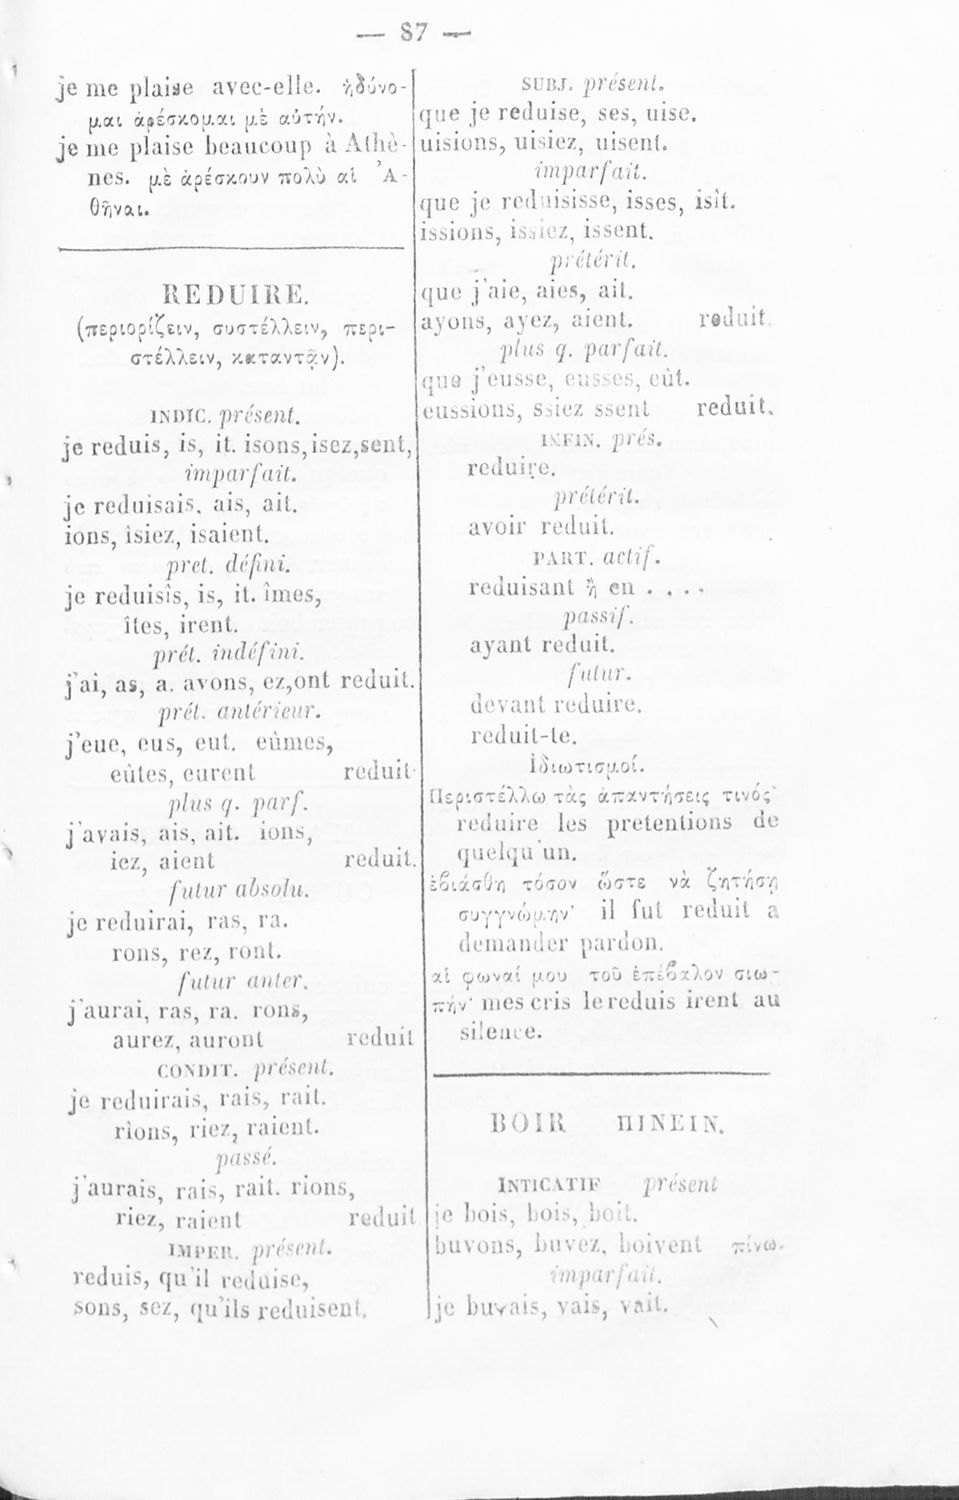 — 87 —
je me plaise avec-elle. ἡδύνο-
μαι ἀρέσκομαι μὲ αὐτήν.
je me plaise beaucoup à Athè-
nes. μὲ ἀρέσκουν πολὺ αἱ Ἀ-
θῆναι.
REDUIRE.
(περιορίζειν, συστέλλειν, περι-
στέλλειν, καταντᾷν).
INDIC. présent.
je reduis, is, it. isons, isez, sent,
imparfait.
je reduisais. ais, ait.
ions, îsiez, isaient.
pret. défini.
je reduisîs, is, it. îmes,
îtes, irent.
prét. indéfini.
j'ai, as, a. avons, ez, ont reduit.
prét. antérieur.
j'eue, eus, eut. eûmes,
eûtes, eurent reduit
plus q. parf.
j'avais, ais, ait. ions,
iez, aient reduit.
futur absolu.
je reduirai, ras, ra.
rons, rez, ront.
futur anter.
j'aurai, ras, ra. rons,
aurez, auront reduit
CONDIT. présent.
je reduirais, rais, rait.
rions, riez, raient.
passé.
j'aurais, rais, rait. rions,
riez, raient reduit
IMPER. présent.
reduis, qu'il reduise,
sons, sez, qu'ils reduisent.
SUBJ. présent.
que je reduise, ses, uise.
uisions, uisiez, uisent.
imparfait.
que je reduisisse, isses, isît.
issions, issiez, issent.
prétérit.
que j'aie, aies, ait.
ayons, ayez, aient. reduit.
plus q. parfait.
que j'eusse, eusses, eût.
eussions, ssiez ssent reduit.
INFIN. prés.
reduire.
prétérit.
avoir reduit.
PART. actif.
reduisant ἢ en . . . .
passif.
ayant reduit.
futur.
devant reduire.
reduit-te.
ἰδιωτισμοί.
Περιστέλλω τὰς ἀπαντήσεις τινός·
reduire les pretentions de
quelqu'un.
ἐβιάσθη τόσον ὥστε νὰ ζητήσῃ
συγγνώμην· il fut reduit a
demander pardon.
αἱ φωναί μου τοῦ ἐπέβαλον σιω-
πήν· mes cris le reduis irent au
silence.
BOIR ΠΙΝΕΙΝ.
INTICATIF présent
je bois, bois, boit.
buvons, buvez, boivent πίνω.
imparfait.
je buvais, vais, vait.